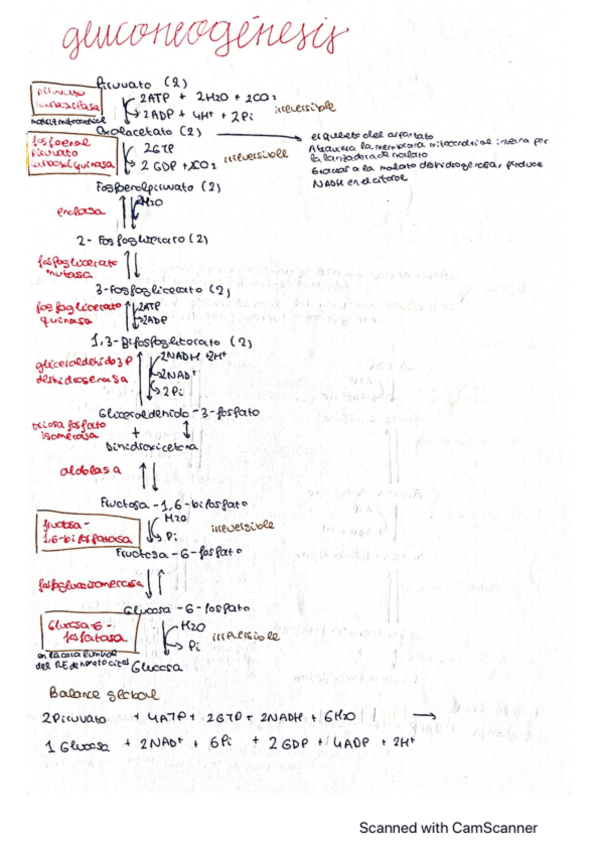 gluconeogénesis
Piruvato (2)
piruvato
carboxilasa
matriz mitocondrial
2ATP + 2H2O + 2CO2
2ADP + 4H+ + 2Pi
irreversible
Oxalacetato (2)
el queleto del aspartato
Atraviesa la membrana mitocondrial interna por
la lanzadera de malato
Gracias a la malato deshidrogenasa, produce
NADH en el citosol
fosfoenol
piruvato
carboxiquinasa
2GTP
2 GDP + 2CO2
irreversible
Fosfoenolpiruvato (2)
enolasa
2H2O
2-Fosfoglicerato (2)
fosfoglicerato
mutasa
3-Fosfoglicerato (2)
fosfoglicerato
quinasa
2ATP
2ADP
1,3-Bifosfoglicerato (2)
gliceraldehido 3P
deshidrogenasa
2NADH 2H+
2NAD+
2Pi
Gliceraldehido-3-fosfato
triosa fosfato
isomerasa
+
Dihidroxicetona
aldolasa
Fructosa-1,6-bifosfato
fructosa-
1,6-bifosfatasa
H2O
Pi
irreversible
Fructosa-6-fosfato
fosfoglucoisomerasa
Glucosa-6-fosfato
Glucosa-6-
fosfatasa
H2O
Pi
irreversible
en la cara luminal
del RE de hepatocitos
Glucosa
Balance global
2Piruvato + 4ATP + 2GTP + 2NADH + 6H2O →
1 Glucosa + 2NAD+ + 6Pi + 2 GDP + 4ADP + 2H+
Scanned with CamScanner